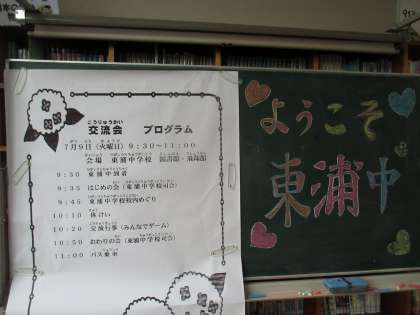 こうりゅうかい
交流会　プログラム
7月9日（火曜日）9:30～11:00
会場　東浦中学校　図書館・
9:30　東浦中到着
9:35　はじめの会（東浦中学校司会）
9:45　東浦中学校校内めぐり
10:10　休けい
10:20　交流行事（みんなでゲーム）
10:50　おわりの会（東浦中学校司会）
11:00　バス乗車
ようこそ
東浦中